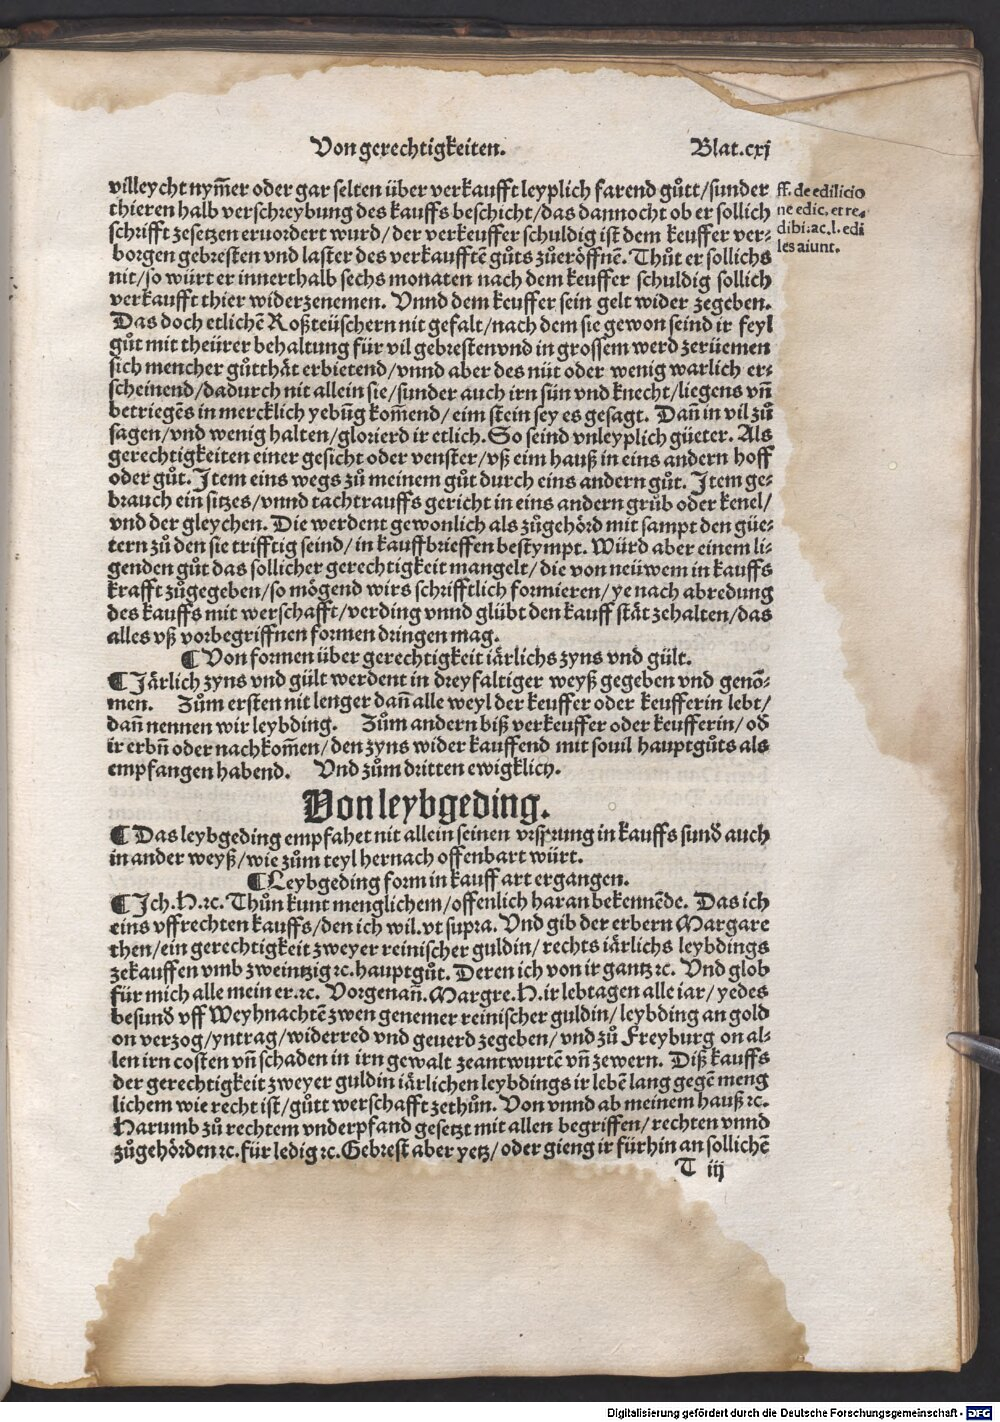 Von gerechtigkeiten. Blat.cxj
villeycht nym̃er oder gar selten über verkaufft leyplich farend gůtt/sunder
thieren halb verschreybung des kauffs beschicht/das dannocht ob er sollich
schrifft zesetzen eruordert wurd/der verkeuffer schuldig ist dem keuffer ver⸗
borgen gebresten vnd laster des verkaufftẽ gůts zůeröffnẽ. Thůt er sollichs
nit/so würt er innerthalb sechs monaten nach dem keuffer schuldig sollich
verkaufft thier widerzenemen. Vnnd dem keuffer sein gelt wider zegeben.
Das doch etlichẽ Roßteüschern nit gefalt/nach dem sie gewon seind ir feyl
gůt mit theürer behaltung für vil gebresten vnd in grossem werd zerüemen
sich mencher gůtthät erbietend/vnnd aber des nüt oder wenig warlich er⸗
scheinend/dadurch nit allein sie/sunder auch irn sün vnd knecht/liegens vñ
betriegẽs in mercklich yebũg kom̃end/eim stein sey es gesagt. Dañ in vil zů
sagen/vnd wenig halten/glorierd ir etlich. So seind vnleyplich güeter. Als
gerechtigkeiten einer gesicht oder venster/vß eim hauß in eins andern hoff
oder gůt. Item eins wegs zů meinem gůt durch eins andern gůt. Item ge⸗
brauch ein sitzes/vnnd tachtrauffs gericht in eins andern grůb oder kenel/
vnd der gleychen. Die werdent gewonlich als zůgehörd mit sampt den güe⸗
tern zů den sie trifftig seind/in kauffbrieffen bestympt. Würd aber einem li⸗
genden gůt das sollicher gerechtigkeit mangelt/die von neüwem in kauffs
krafft zůgegeben/so mögend wirs schrifftlich formieren/ye nach abredung
des kauffs mit werschafft/verding vnnd glübt den kauff stät zehalten/das
alles vß vorbegriffnen formen dringen mag.
ff. de edilicio
ne edic. et re⸗
dibi:ac.l. edi
les aiunt.
¶ Von formen über gerechtigkeit iärlichs zyns vnd gült.
¶ Järlich zyns vnd gült werdent in dreyfaltiger weyß gegeben vnd genõ⸗
men. Zům ersten nit lenger dañ alle weyl der keuffer oder keufferin lebt/
dañ nennen wir leybding. Zům andern biß verkeuffer oder keufferin/od̕
ir erbñ oder nachkom̃en/den zyns wider kauffend mit souil hauptgůts als
empfangen habend. Vnd zům dritten ewigklich.
Von leybgeding.
¶ Das leybgeding empfahet nit allein seinen vrsprung in kauffs sund̕ auch
in ander weyß/wie zům teyl hernach offenbart würt.
¶ Leybgeding form in kauff art ergangen.
¶ Ich.N.ꝛc. Thůn kunt menglichem/offenlich haran bekennẽde. Das ich
eins vffrechten kauffs/den ich wil.vt supra. Vnd gib der erbern Margare
then/ein gerechtigkeit zweyer reinischer guldin/rechts iärlichs leybdings
zekauffen vmb zweintzig ꝛc. hauptgůt. Deren ich von ir gantz ꝛc. Vnd glob
für mich alle mein er.ꝛc. Vorgenañ.Margre.N.ir lebtagen alle iar/yedes
besund̕ vff Weyhnachtẽ zwen genemer reinischer guldin/leybding an gold
on verzog/yntrag/widerred vnd geuerd zegeben/vnd zů Freyburg on al⸗
len irn costen vñ schaden in irn gewalt zeantwurtẽ vñ zewern. Diß kauffs
der gerechtigkeit zweyer guldin iärlichen leybdings ir lebẽ lang gegẽ meng
lichem wie recht ist/gůtt werschafft zethůn. Von vnnd ab meinem hauß ꝛc.
Harumb zů rechtem vnderpfand gesetzt mit allen begriffen/rechten vnnd
zůgehörden ꝛc. für ledig ꝛc. Gebrest aber yetz/oder gieng ir fürhin an sollichẽ
T iij
Digitalisierung gefördert durch die Deutsche Forschungsgemeinschaft - DFG